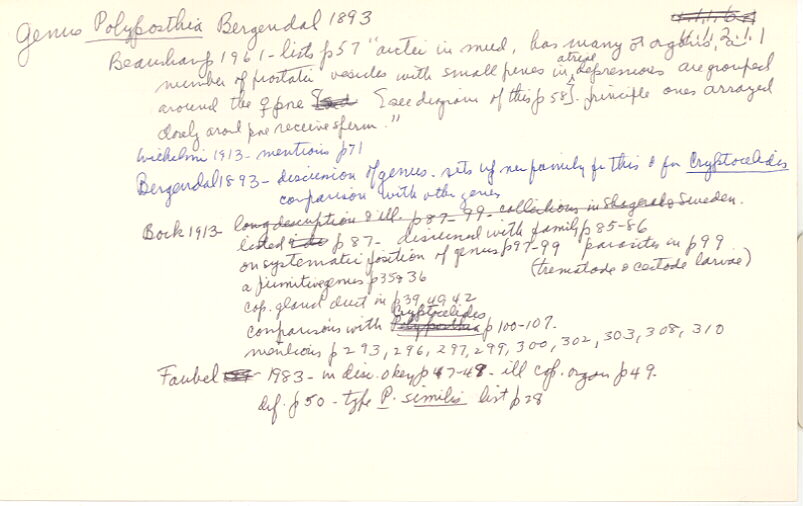 Genus Polyposthia Bergendal 1893
11.1.1.2.1.1
Beauchamp 1961 - lists p57 "arctic in mud, has many ♂ organs, a
number of prostatic vesicles with small penes in atrial depressions are grouped
around the ♀ pore [see diagram of this p58]. principle ones arrayed
closely around pore receive sperm."
Wilhelmi 1913 - mentions p71
Bergendal 1893 - discussion of genus. sets up new family for this & for Cryptocelides
comparison with other genera
Bock 1913 - long description & ill. p87-99 - collections in Skagerak Sweden.
listed p87 - discussed with family p85-86
on systematic position of genus p97-99 parasites in p99
a primitive genus p35 & 36 (trematode & cestode larvae)
cop. gland duct in p39, 49 42
comparisons with Cryptocelides p100-107.
mentions p293, 296, 297, 299, 300, 302, 303, 308, 310
Faubel 1983 - in disc. & key p47-48 - ill cop. organ p49.
def. p50 - type P. similis list p28